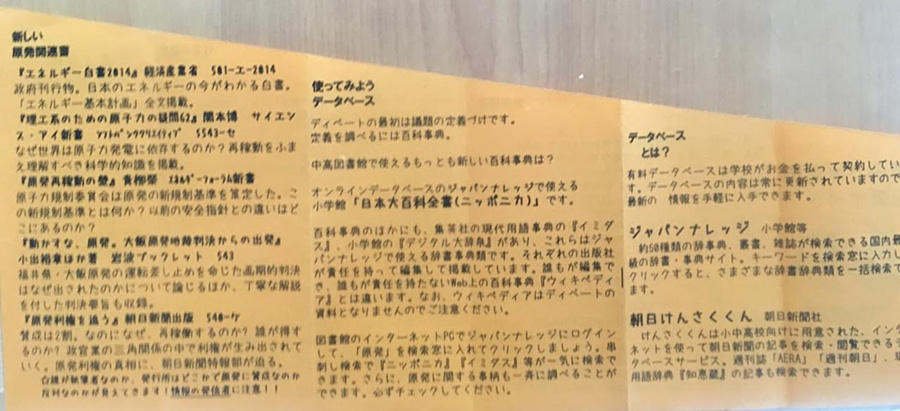 新しい
原発関連書
『エネルギー白書2014』 経済産業省 501-エ-2014
政府刊行物。日本のエネルギーの今がわかる白書。
「エネルギー基本計画」全文掲載。
『理工系のための原子力の疑問62』 関本博 サイエン
ス・アイ新書 ソフトバンククリエイティブ S543-セ
なぜ世界は原子力発電に依存するのか?再稼動をふま
え理解すべき科学的知識を掲載。
『原発再稼働の壁』 青柳榮 エネルギーフォーラム新書
原子力規制委員会は原発の新規制基準を策定した。こ
の新規制基準とは何か?以前の安全指針との違いはど
こにあるのか?
『動かすな、原発。大飯原発地裁判決からの出発』
小出裕章ほか著 岩波ブックレット 543
福井県・大飯原発の運転差し止めを命じた画期的判決
はなぜ出されたのかについて論じるほか、丁寧な解説
を付した判決要旨も収録。
『原発利権を追う』 朝日新聞出版 540-ケ
賛成は2割。なのになぜ、再稼働するのか?誰が得す
るのか?政官業の三角関係の中で利権が生み出されて
いく。原発利権の真相に、朝日新聞特報部が迫る。
白書が執筆者なのか、発行所はどこかで原発に賛成なのか
反対なのかが見えてきます!情報の発信者に注意!!
使ってみよう
データベース
ディベートの最初は議題の定義づけです。
定義を調べるには百科事典。
中高図書館で使えるもっとも新しい百科事典は?
オンラインデータベースのジャパンナレッジで使える
小学館「日本大百科全書(ニッポニカ)」です。
百科事典のほかにも、集英社の現代用語事典の『イミダ
ス』、小学館の『デジタル大辞泉』があり、これらはジャ
パンナレッジで使える辞書事典類です。それぞれの出版社
が責任を持って編集して掲載しています。誰もが編集で
き、誰もが責任を持たないWeb上の百科事典『ウィキペディ
ア』とは違います。なお、ウィキペディアはディベートの
資料となりませんのでご注意ください。
図書館のインターネットPCでジャパンナレッジにログイン
して、「原発」を検索窓に入れてクリックしましょう。串
刺し検索で『ニッポニカ』『イミダス』等が一気に検索で
きます。さらに、原発に関する事柄も一斉に調べることが
できます。必ずチェックしてください。
データベース
とは?
有料データベースは学校がお金を払って契約してい
す。データベースの内容は常に更新されていますので
最新の 情報を手軽に入手できます。
ジャパンナレッジ 小学館等
約50種類の辞事典、叢書、雑誌が検索できる国内最
級の辞書・事典サイト。キーワードを検索窓に入力し
クリックすると、さまざまな辞書辞典類を一括検索で
ます。
朝日けんさくくん 朝日新聞社
けんさくくんは小中高校向けに用意された、インタ
ネットを使って朝日新聞の記事を検索・閲覧できるデ
タベースサービス。週刊誌「AERA」「週刊朝日」、現
用語辞典『知恵蔵』の記事も検索できます。